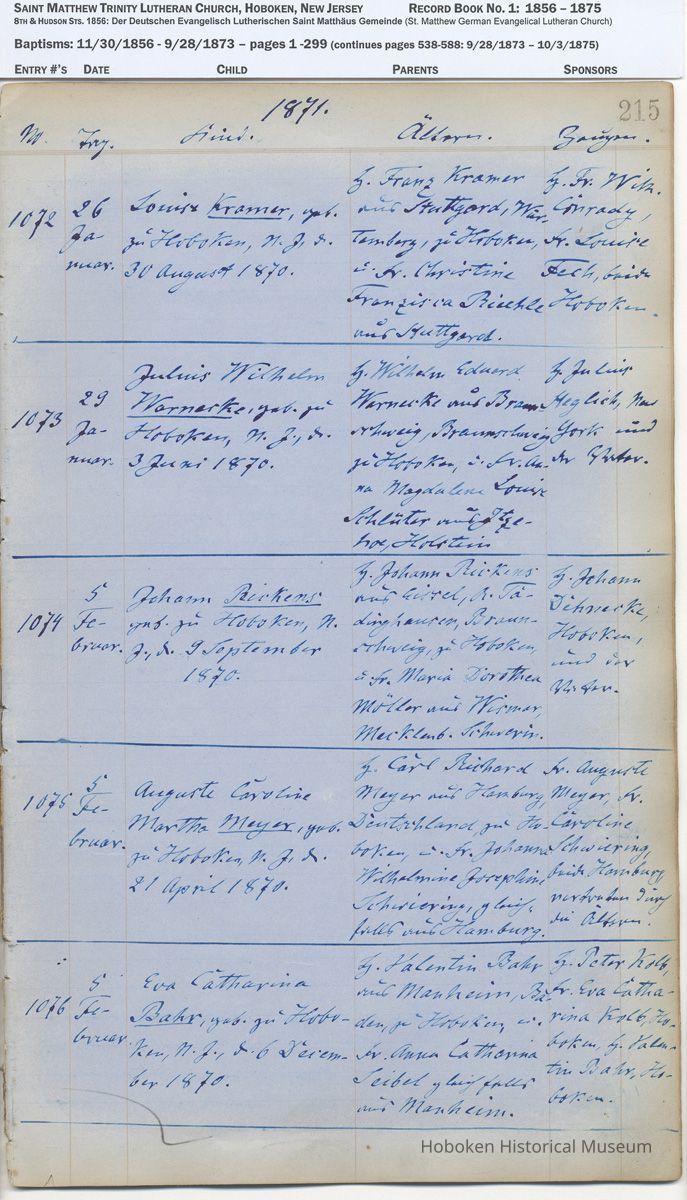 SAINT MATTHEW TRINITY LUTHERAN CHURCH, HOBOKEN, NEW JERSEY RECORD BOOK NO. 1: 1856 – 1875
8TH & HUDSON STS. 1856: Der Deutschen Evangelisch Lutherischen Saint Matthäus Gemeinde (St. Matthew German Evangelical Lutheran Church)
Baptisms: 11/30/1856 - 9/28/1873 – pages 1 -299 (continues pages 538-588: 9/28/1873 – 10/3/1875)
ENTRY #'S DATE CHILD PARENTS SPONSORS
1871. 215
No. Tag. Kind. Ältern. Zeugen.
1072
26
Ja-
nuar.
Louise Kramer, geb.
zu Hoboken, N. J., d.
30 August 1870.
H. Franz Kramer
aus Stuttgard, Wür-
temberg, zu Hoboken,
u. Fr. Christine
Franzisca Riehle
aus Stuttgard.
H. Fr. Wilh.
Conrady,
Fr. Louise
Fech, beide
Hoboken.
1073
29
Ja-
nuar.
Julius Wilhelm
Warnecke, geb. zu
Hoboken, N. J., d.
3 Juni 1870.
H. Wilhelm Eduard
Warnecke aus Braun-
schweig, Braunschweig
zu Hoboken, u. Fr. An-
na Magdalena Louise
Schlüter aus Itze-
hoe, Holstein
H. Julius
Heglich, New
York und
der Vater.
1074
5
Fe-
bruar.
Johann Rickens
geb. zu Hoboken, N.
J., d. 9 September
1870.
H. Johann Rickens
aus Eissel, A. Tä-
dinghausen, Braun-
schweig, zu Hoboken,
u. Fr. Maria Dorothea
Möller aus Wismar,
Mecklenb. Schwerin.
H. Johann
Hoboken,
und der
Vater.
1075
5
Fe-
bruar.
Auguste Caroline
Martha Meyer, geb.
zu Hoboken, N. J., d.
21 April 1870.
H. Carl Richard
Meyer aus Hamburg,
Deutschland, zu Ho-
boken, u. Fr. Johanna
Wilhelmine Josephine
Schwiering, gleich-
falls aus Hamburg.
Fr. Auguste
Meyer, Fr.
Caroline
Schwiering,
beide Hamburg
vertreten durch
die Ältern.
1076
5
Fe-
bruar.
Eva Catharina
Bahr, geb. zu Hobo-
ken, N. J., d. 6 Decem-
ber 1870.
H. Valentin Bahr
aus Manheim, Ba-
den, zu Hoboken, u.
Fr. Anna Catharina
Seibel gleichfalls
aus Manheim.
H. Peter Kolb,
Fr. Eva Catha-
rina Kolb, Ho-
boken, H. Valen-
tin Bahr, Ho-
boken.
Hoboken Historical Museum